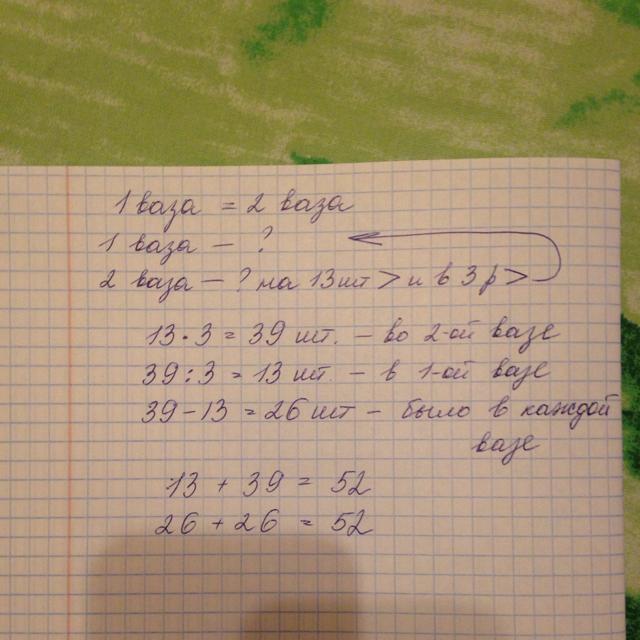 1 ваза = 2 ваза
1 ваза — ?
2 ваза — ? на 13шт > и в 3 р >
13 · 3 = 39 шт. — во 2-ой вазе
39 : 3 = 13 шт. — в 1-ой вазе
39 - 13 = 26 шт — было в каждой
вазе
13 + 39 = 52
26 + 26 = 52